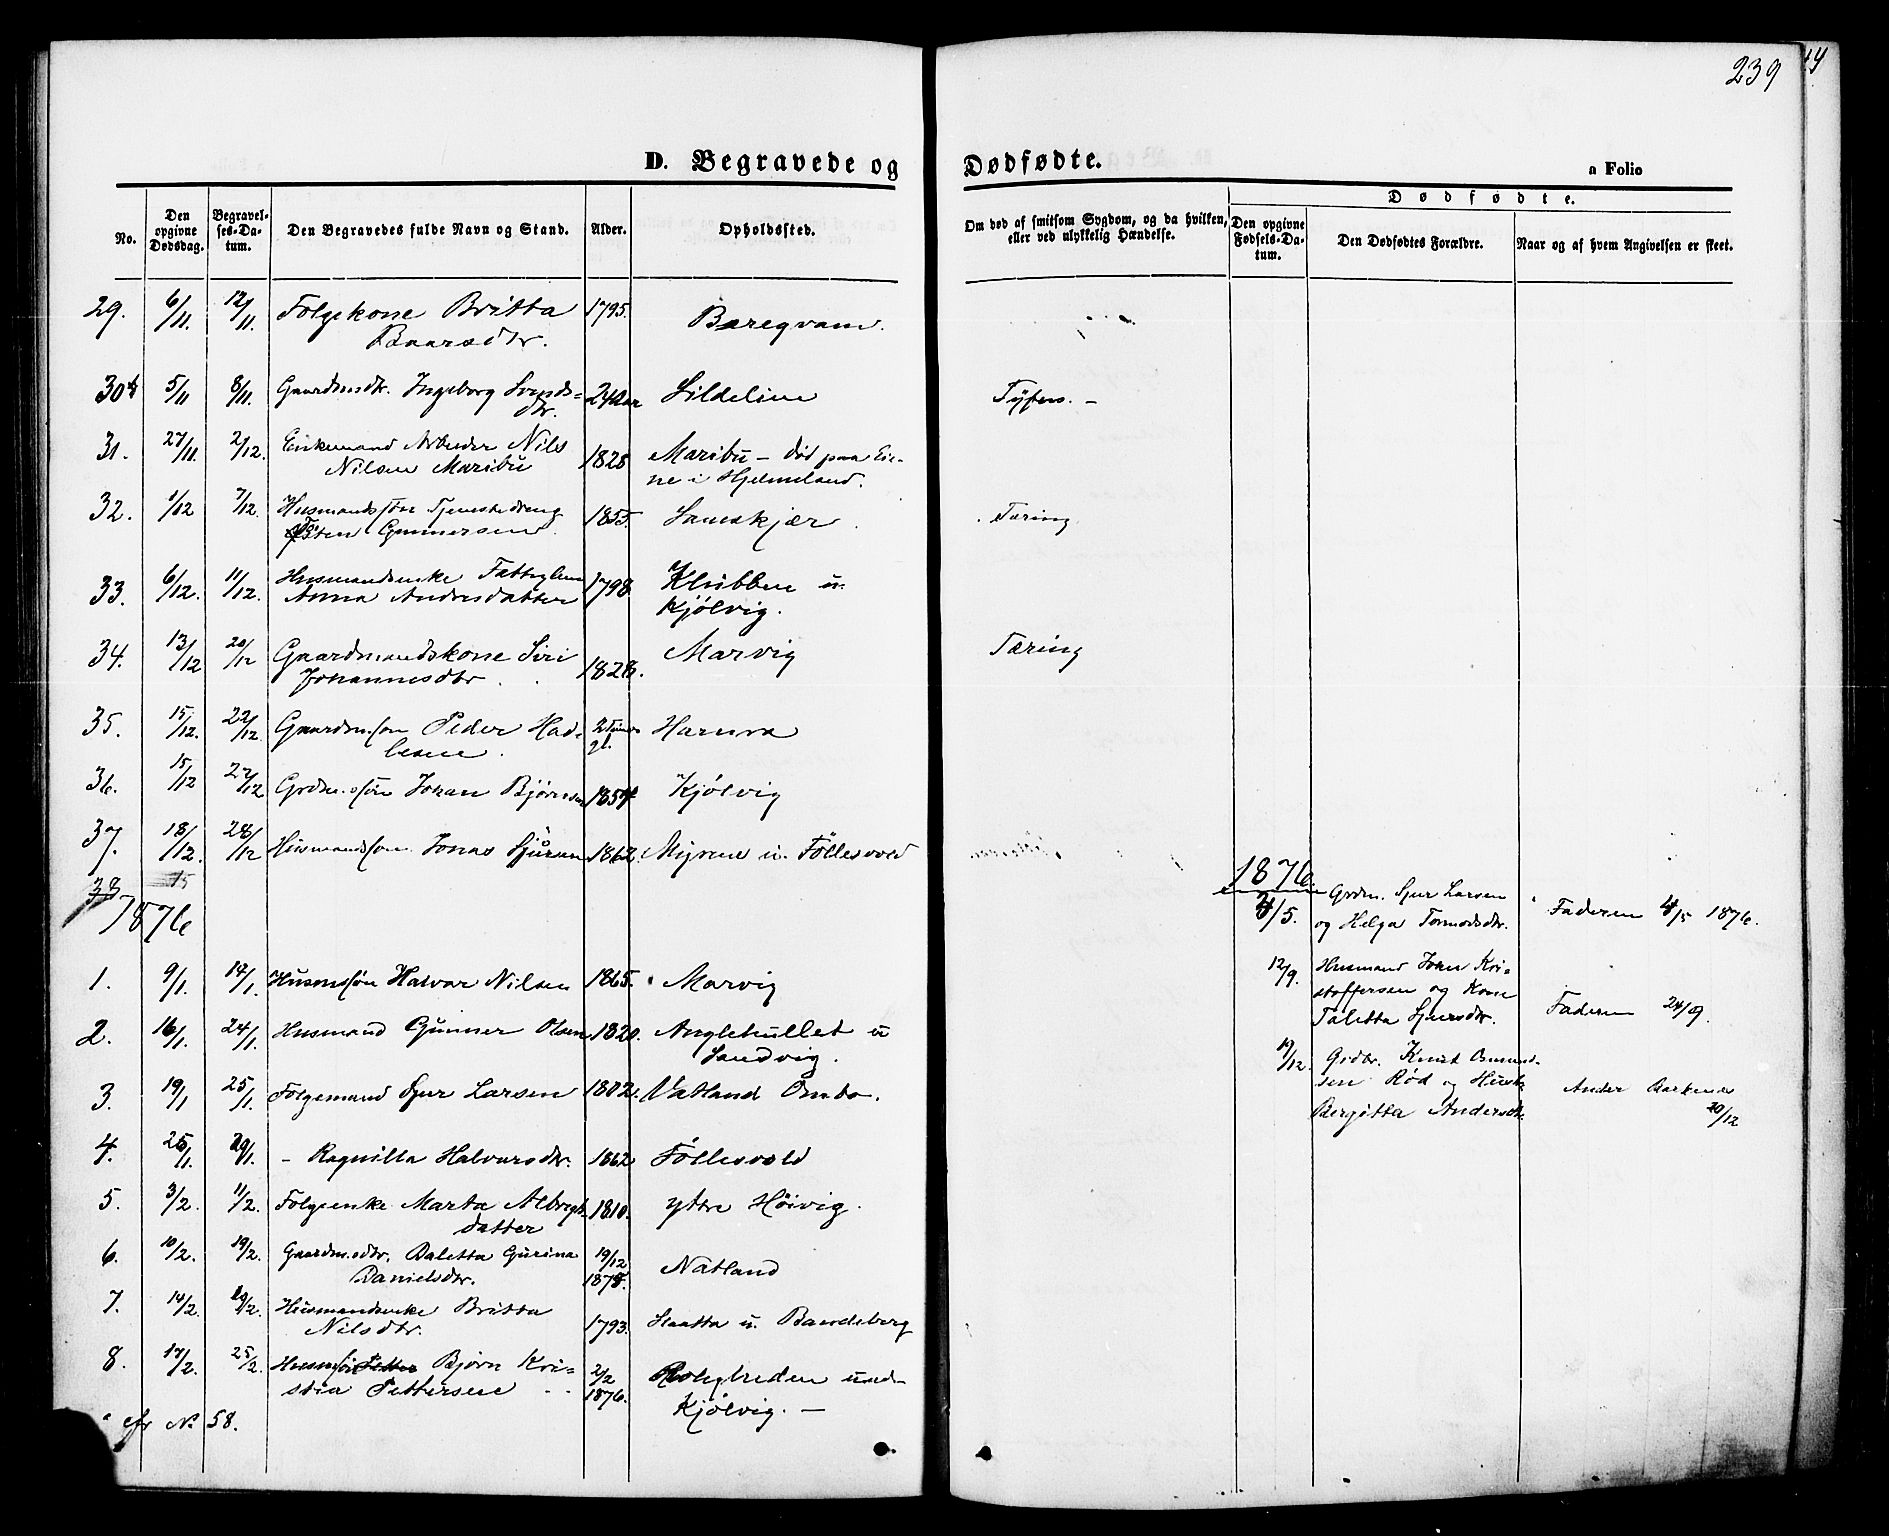 239
D. Begravede og Dødfødte.
a Folio
No.
Den opgivne Dødsdag.
Begravelses-Datum.
Den Begravedes fulde Navn og Stand.
Alder.
Opholdssted.
Om død af smitsom Sygdom, og da hvilken, eller ved ulykkelig Hændelse.
Dødfødte.
Den opgivne Fødsels-Datum.
Den Dødfødtes Forældre.
Naar og af hvem Angivelsen er skeet.
29. 6/11. 12/11. Folgekone Britta 1795. Baregvam.
Baarsdtr.
30 5/11 8/11. Gaardmdtr. Ingeborg Svends= Sildeline Tyfus. –
dtr.
31. 27/11. 2/12. Enkemand Arbeider Nils 1828 Maribu – død paa Ei=
Nilsen Maribu ne i Hjelmeland.
32. 1/12 7/12. Husmandssøn Tjenestedreng 1855. Samskjær. Tæring
Østen Gunnersen.
33. 6/12. 11/12. Husmandsenke Fattiglem 1798 Klubben u.
Anna Andresdatter Kjølvig.
34. 13/12 20/12 Gaardmandskone Siri 1828. Marvig Tæring
Johannesdtr.
35. 15/12. 22/12. Gaardm.søn Peder Had=
lesen.
36. 15/12 22/12 Grdm.søn Johan Bjørnsen 1854 Kjølvig
37. 18/12. 28/12 Husmandssøn Jonas Sjursen 1862. Myrene u. Føllesvold
38 15
1876
1. 9/1. 14/1. Husmssøn Halvar Nilsen 1865. Marvig
2. 16/1. 24/1. Husmand Gunner Olsen 1820. Anglehullet u
Sandvig.
3. 19/1 25/1. Folgemand Sjur Larsen 1802. Vatland Ombo.
4. 25/1. 29/1. – Ragnilla Halvarsdtr. 1862 Føllesvold
5. 3/2. 11/2. Folgeenke Marta Albregts= 1810. ytre Høivig.
datter
6. 10/2. 19/2. Gaardm.sdtr. Daletta Gurina 19/12 Natland
Danielsdtr. 1875.
7. 14/2. 19/2. Husmandsenke Britta
Nilsdtr. 1793. Slaatta u. Bandeberg
8. 17/2. 25/2. Husmsøn Petter Bjørn Kri= 2/2 Roligheden und.
stia Pettersen 1876. Kjølvig. –
cfr No 58.
1876.
4/5. Grdm. Sjur Larsen
og Helga Tormodsdtr. Faderen 4/5 1876.
12/9. Husmand John Kri=
stoffersen og Kone
Taletta Sjursdtr. Faderen 24/9.
19/12. Grdbr. Knut Osmund=
sen Rød og Hustr.
Bergitta Andersdtr. Ander Barkene
20/12